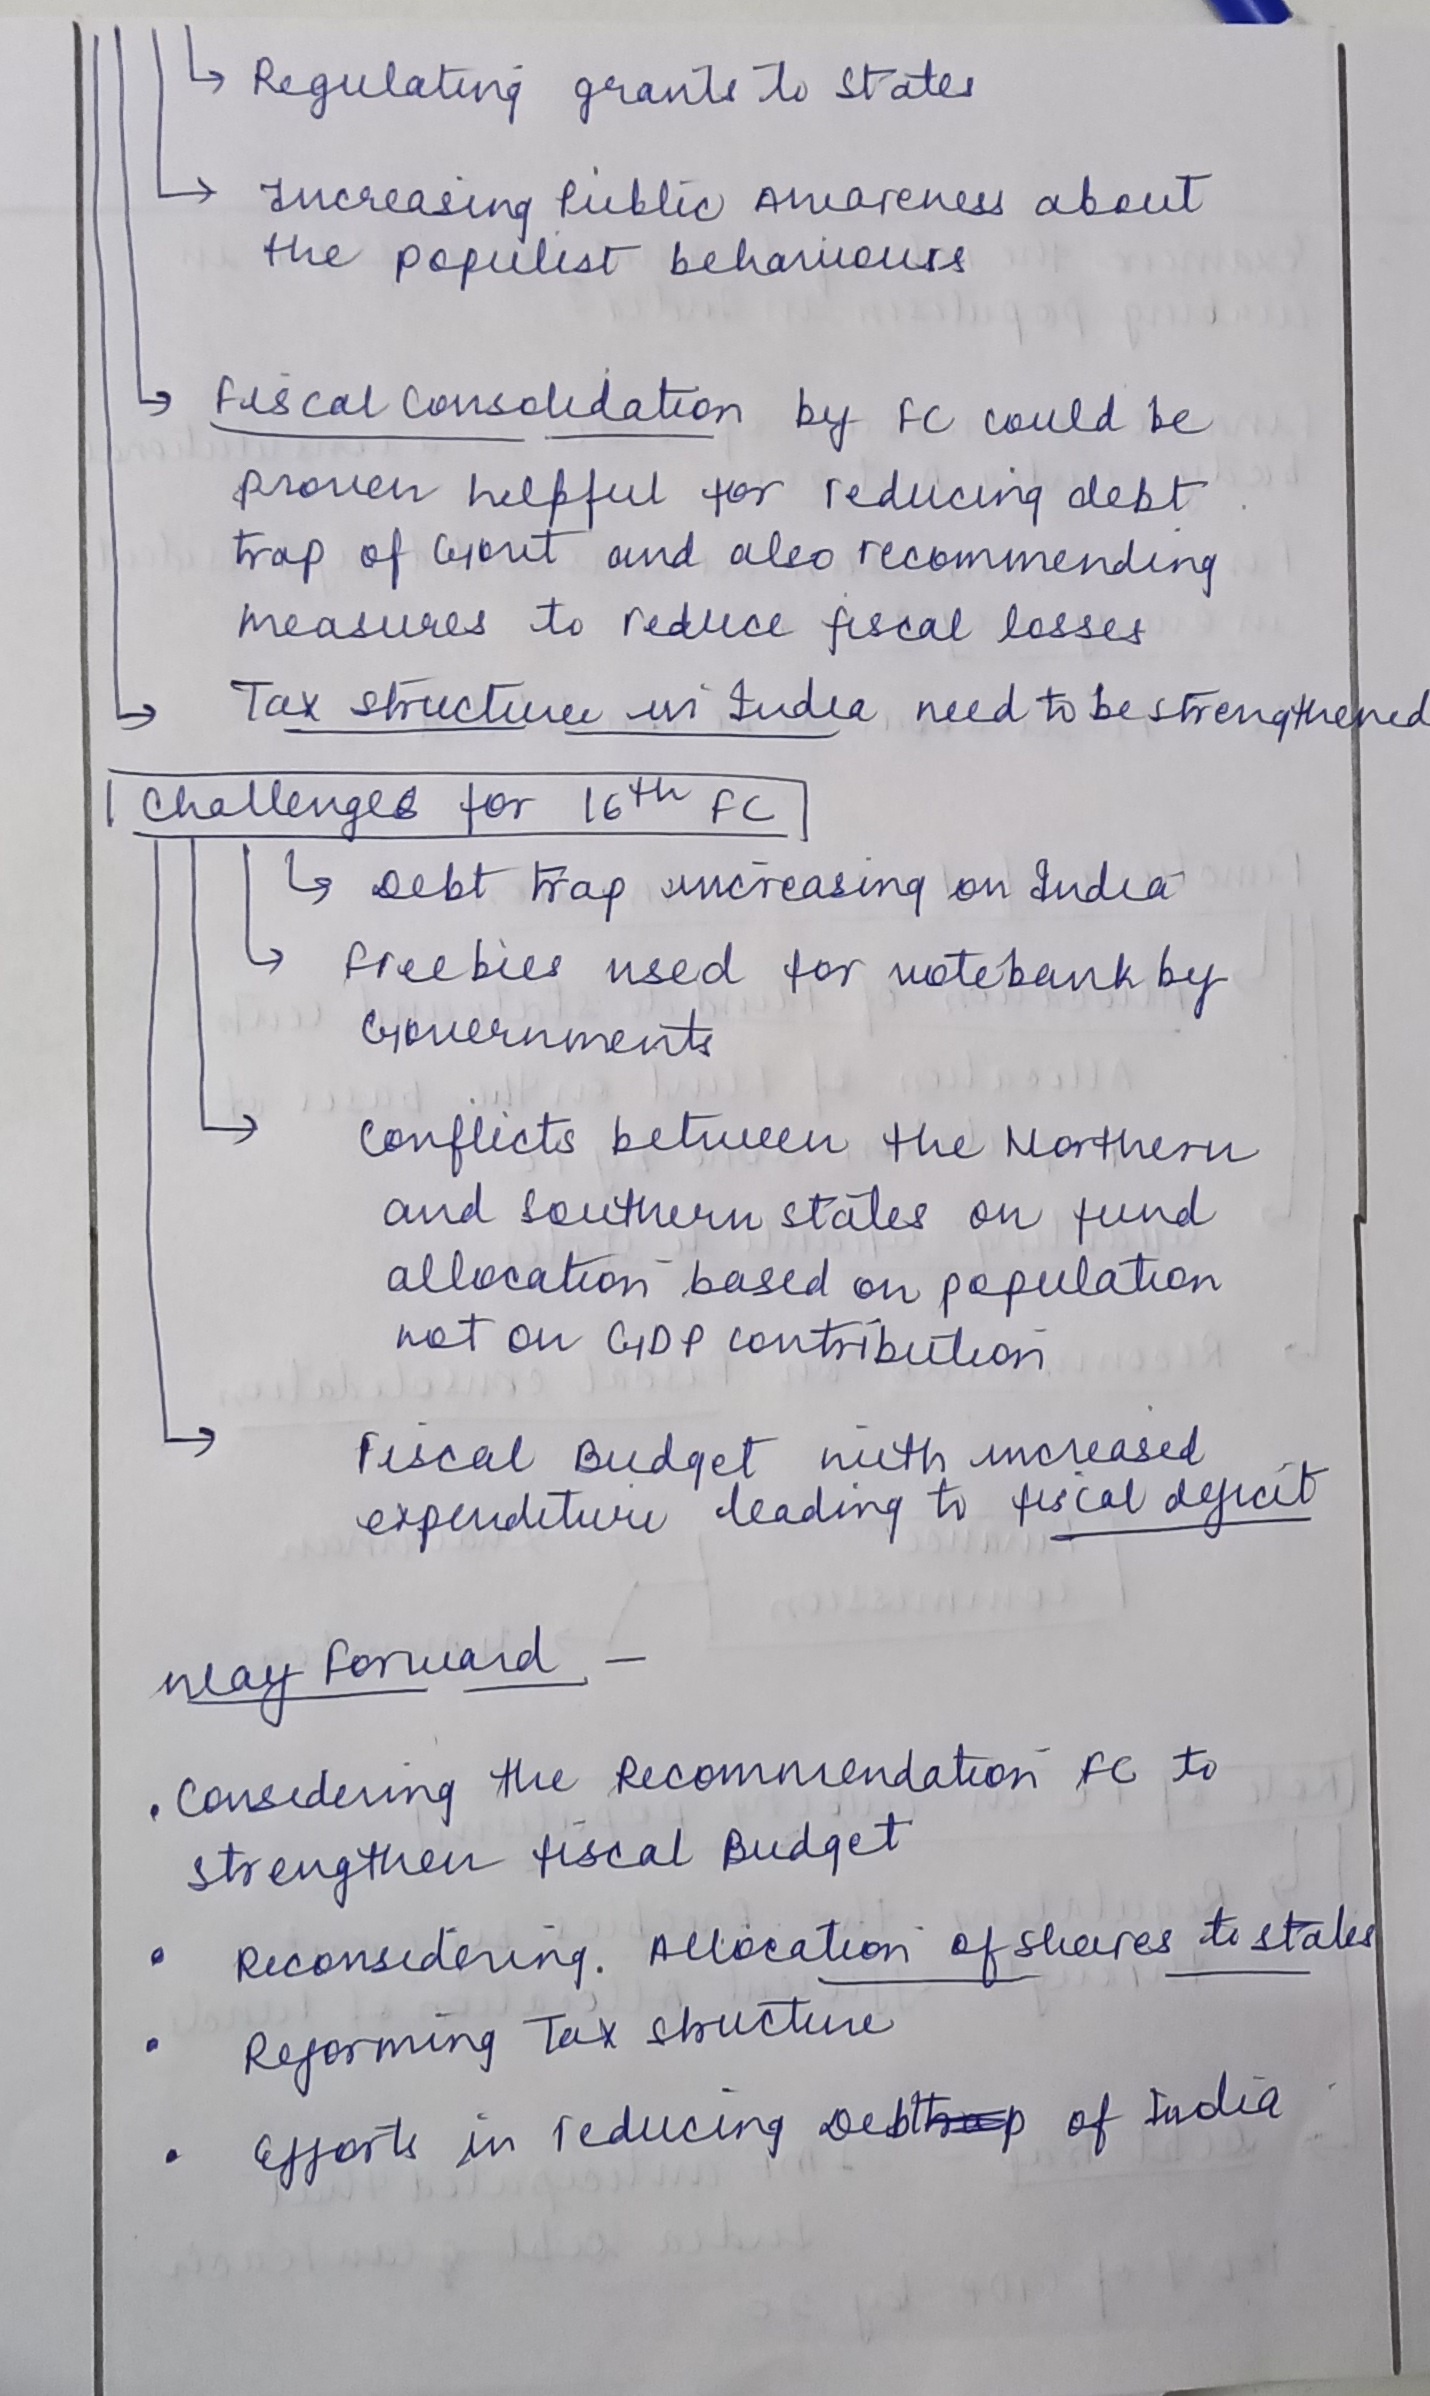 Regulating grants to states
Increasing Public Awareness about
the populist behaviours
Fiscal Consolidation by FC could be
proven helpful for reducing debt
trap of Govt and also recommending
measures to reduce fiscal losses
Tax structure in India need to be strengthened
Challenges for 16th FC
Debt trap increasing on India
Freebies used for votebank by
Governments
Conflicts between the Northern
and Southern states on fund
allocation based on population
not on GDP contribution
Fiscal Budget with increased
expenditure leading to fiscal deficit
Way Forward –
• Considering the Recommendation FC to
strengthen fiscal Budget
• Reconsidering. Allocation of shares to states
• Reforming Tax structure
• Efforts in reducing Debt of India